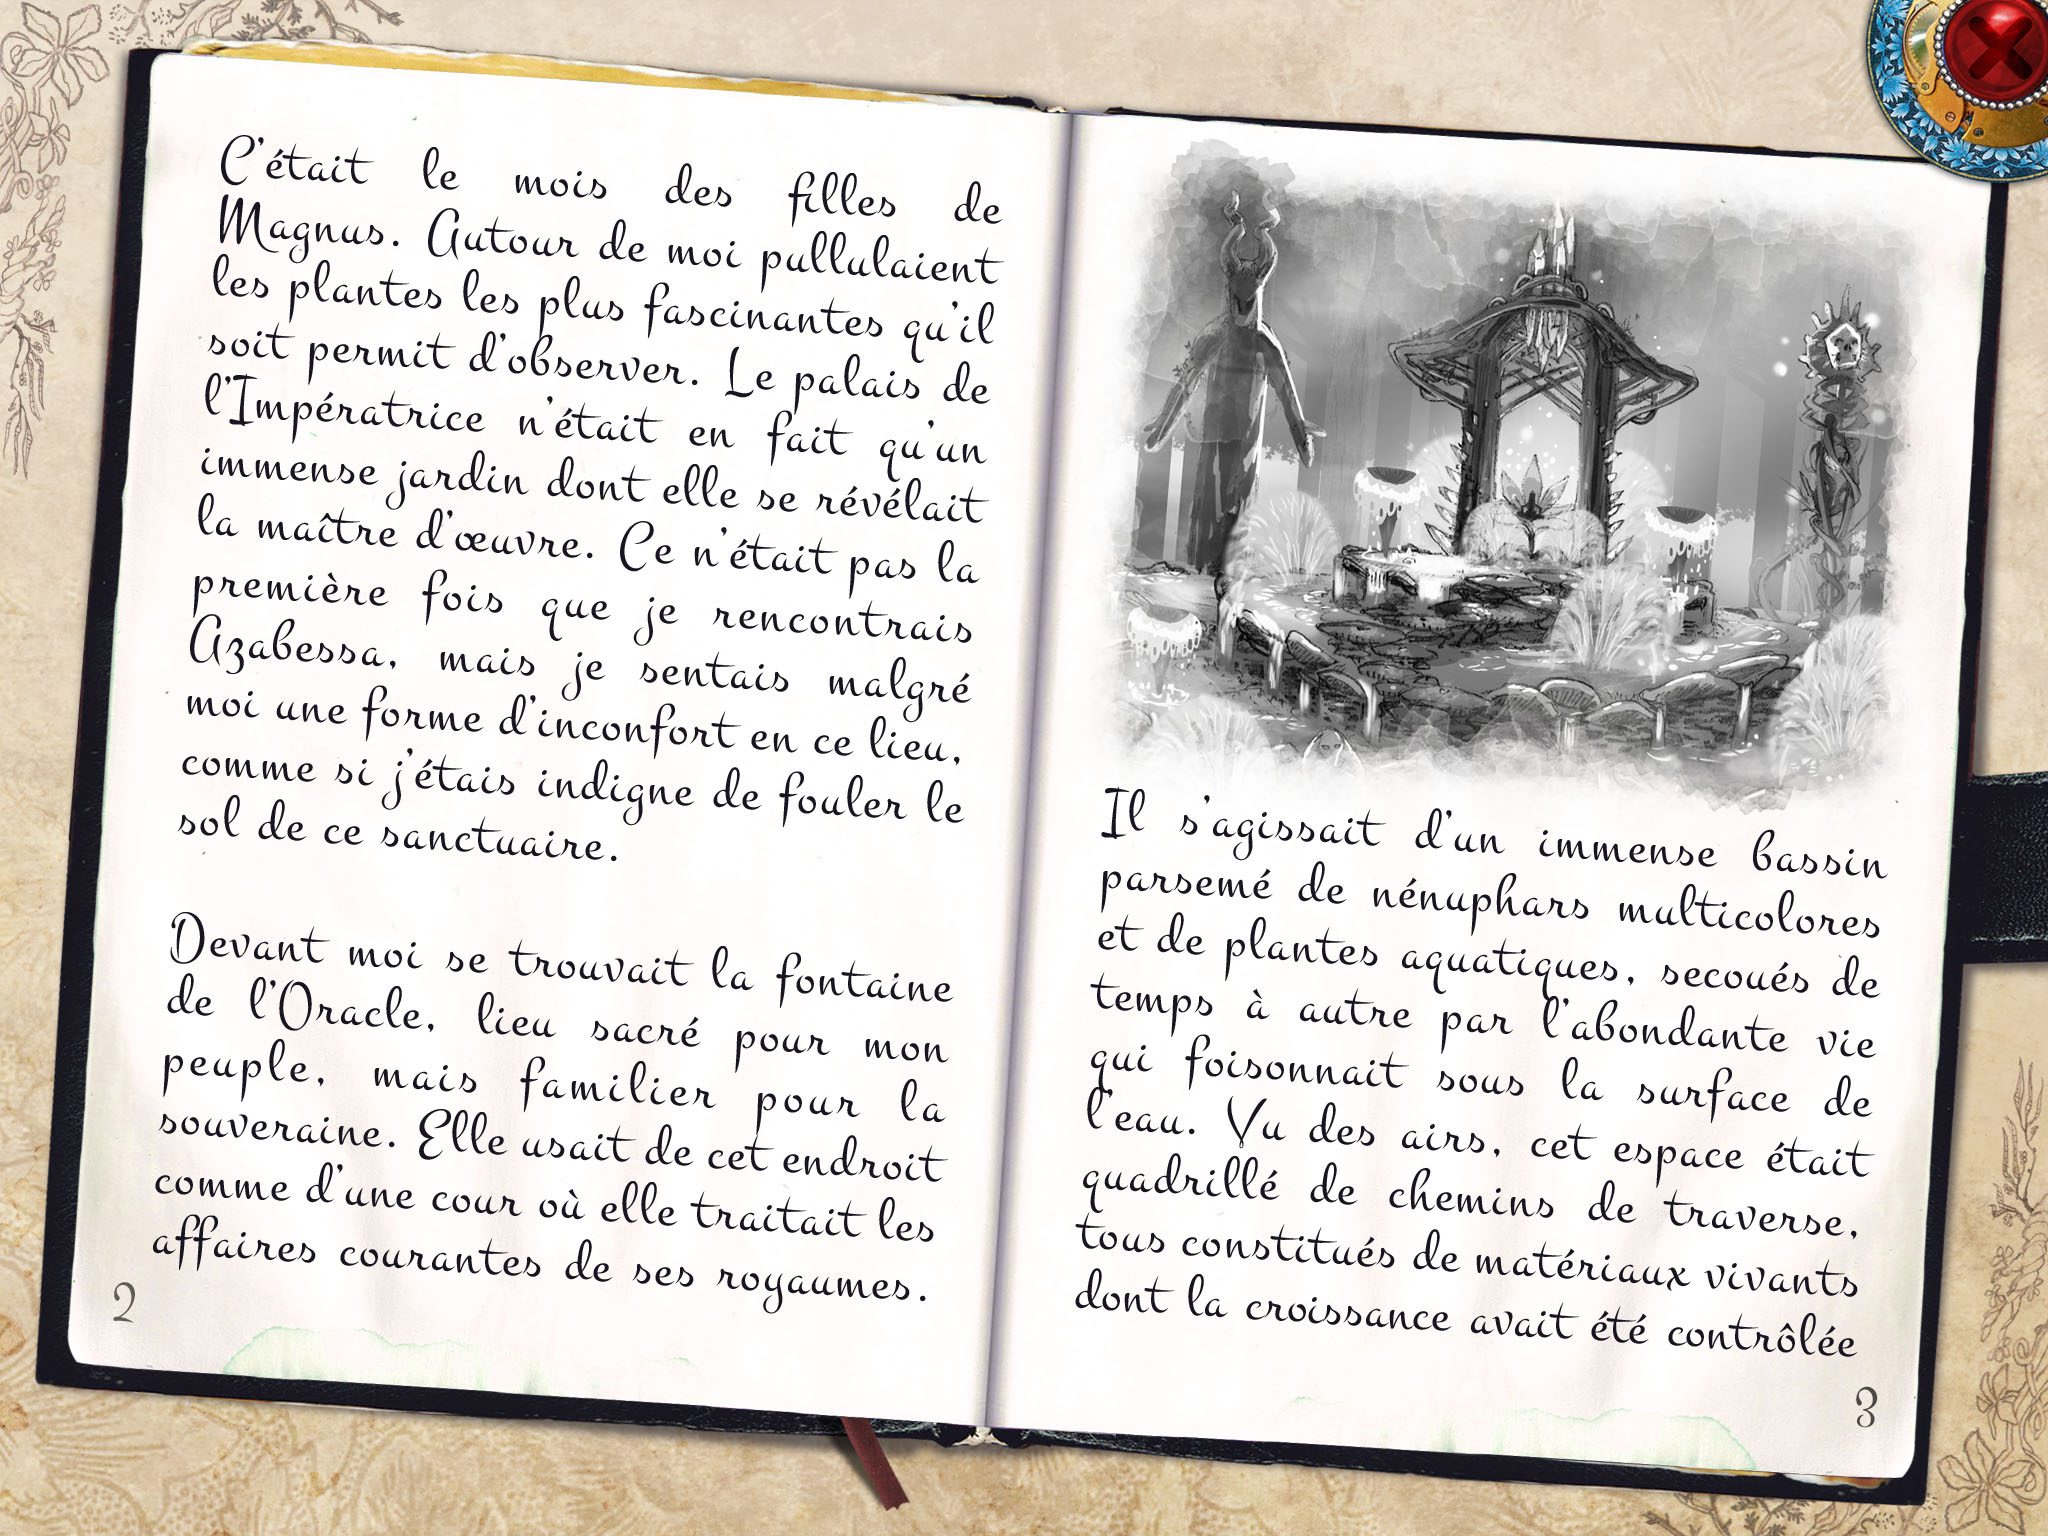 C'était le mois des filles de
Magnus. Autour de moi pullulaient
les plantes les plus fascinantes qu'il
soit permit d'observer. Le palais de
l'Impératrice n'était en fait qu'un
immense jardin dont elle se révélait
la maître d'œuvre. Ce n'était pas la
première fois que je rencontrais
Azabessa, mais je sentais malgré
moi une forme d'inconfort en ce lieu,
comme si j'étais indigne de fouler le
sol de ce sanctuaire.
Devant moi se trouvait la fontaine
de l'Oracle, lieu sacré pour mon
peuple, mais familier pour la
souveraine. Elle usait de cet endroit
comme d'une cour où elle traitait les
affaires courantes de ses royaumes.
2
Il s'agissait d'un immense bassin
parsemé de nénuphars multicolores
et de plantes aquatiques, secoués de
temps à autre par l'abondante vie
qui foisonnait sous la surface de
l'eau. Vu des airs, cet espace était
quadrillé de chemins de traverse,
tous constitués de matériaux vivants
dont la croissance avait été contrôlée
3